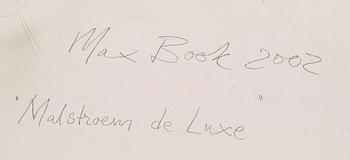 Max Book 2002
"Malstroem de Luxe"